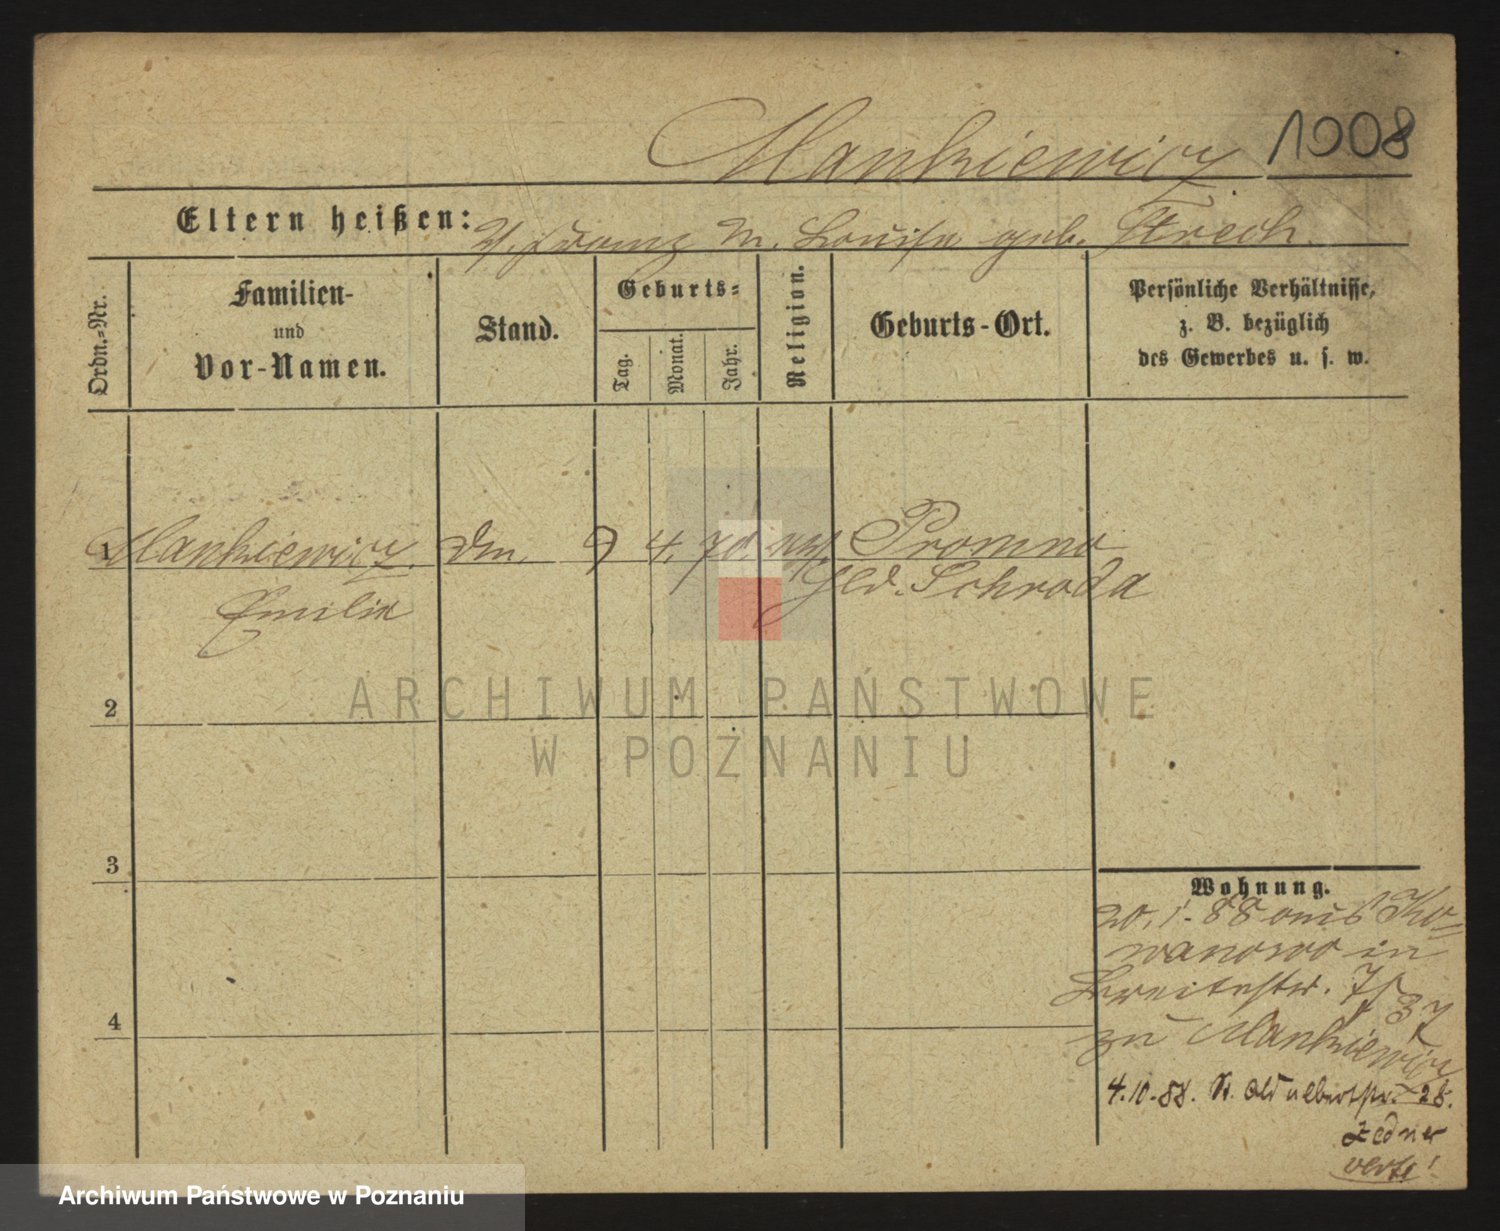 Mankiewicz 1008
Eltern heißen: V. Franz M. Louise geb. Strech.
Ordn.-Nr.
Familien-
und
Vor-Namen.
Stand.
Geburts-
Tag.
Monat.
Jahr.
Religion.
Geburts-Ort.
Persönliche Verhältnisse,
z. B. bezüglich
des Gewerbes u. s. w.
1 Mankiewicz. 9 4. 70. Promno
Emilie Schroda
2
ARCHIWUM PAŃSTWOWE
W POZNANIU
3
Wohnung.
20. 1. 88 aus Ko-
wanowo in
Breitestr. 37
zu Mankiewicz
4
4.10.88. St. Adalbertstr. 28.
Zedner
verte!
Archiwum Państwowe w Poznaniu